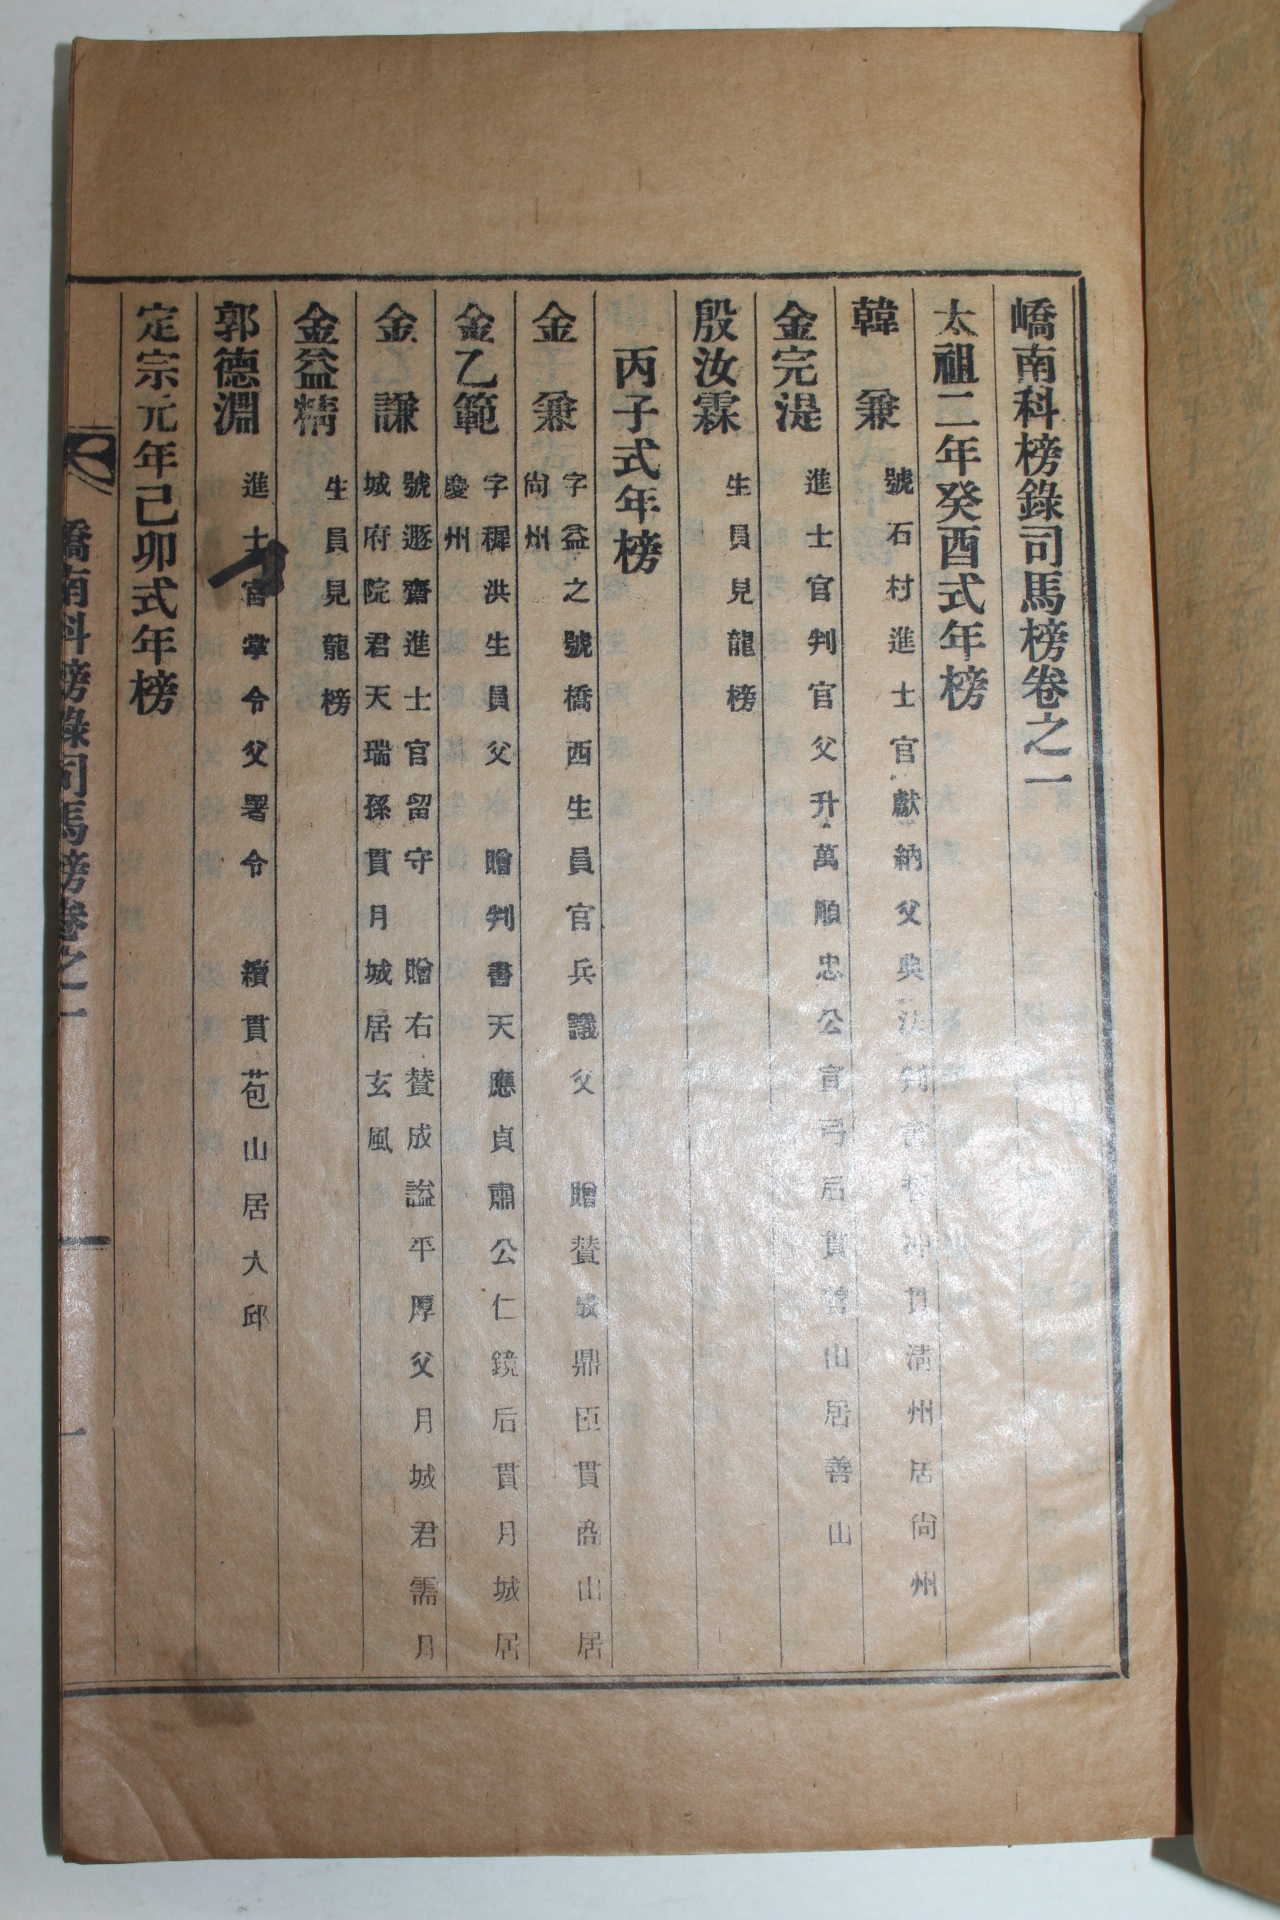 嶠南科榜錄司馬榜卷之一
太祖二年癸酉式年榜
韓兼 號石村進士官獻納父典法判 冲貫淸州居尙州
金完湜 進士官判官父升萬順忠公宣弓后貫 山居善山
殷汝霖 生員見龍榜
丙子式年榜
金兼 字益之號橋西生員官兵議父 贈贊成鼎臣貫商山居
尙州
金乙範 字穉洪生員父 贈判書天應貞肅公仁鏡后貫月城居
慶州
金謙 號遯齋進士官留守 贈右贊成謚平厚父月城君需月
城府院君天瑞孫貫月城居玄風
金益精 生員見龍榜
郭德淵 進士官掌令父署令 續貫苞山居大邱
定宗元年己卯式年榜
嶠南科榜錄司馬榜卷之一 一